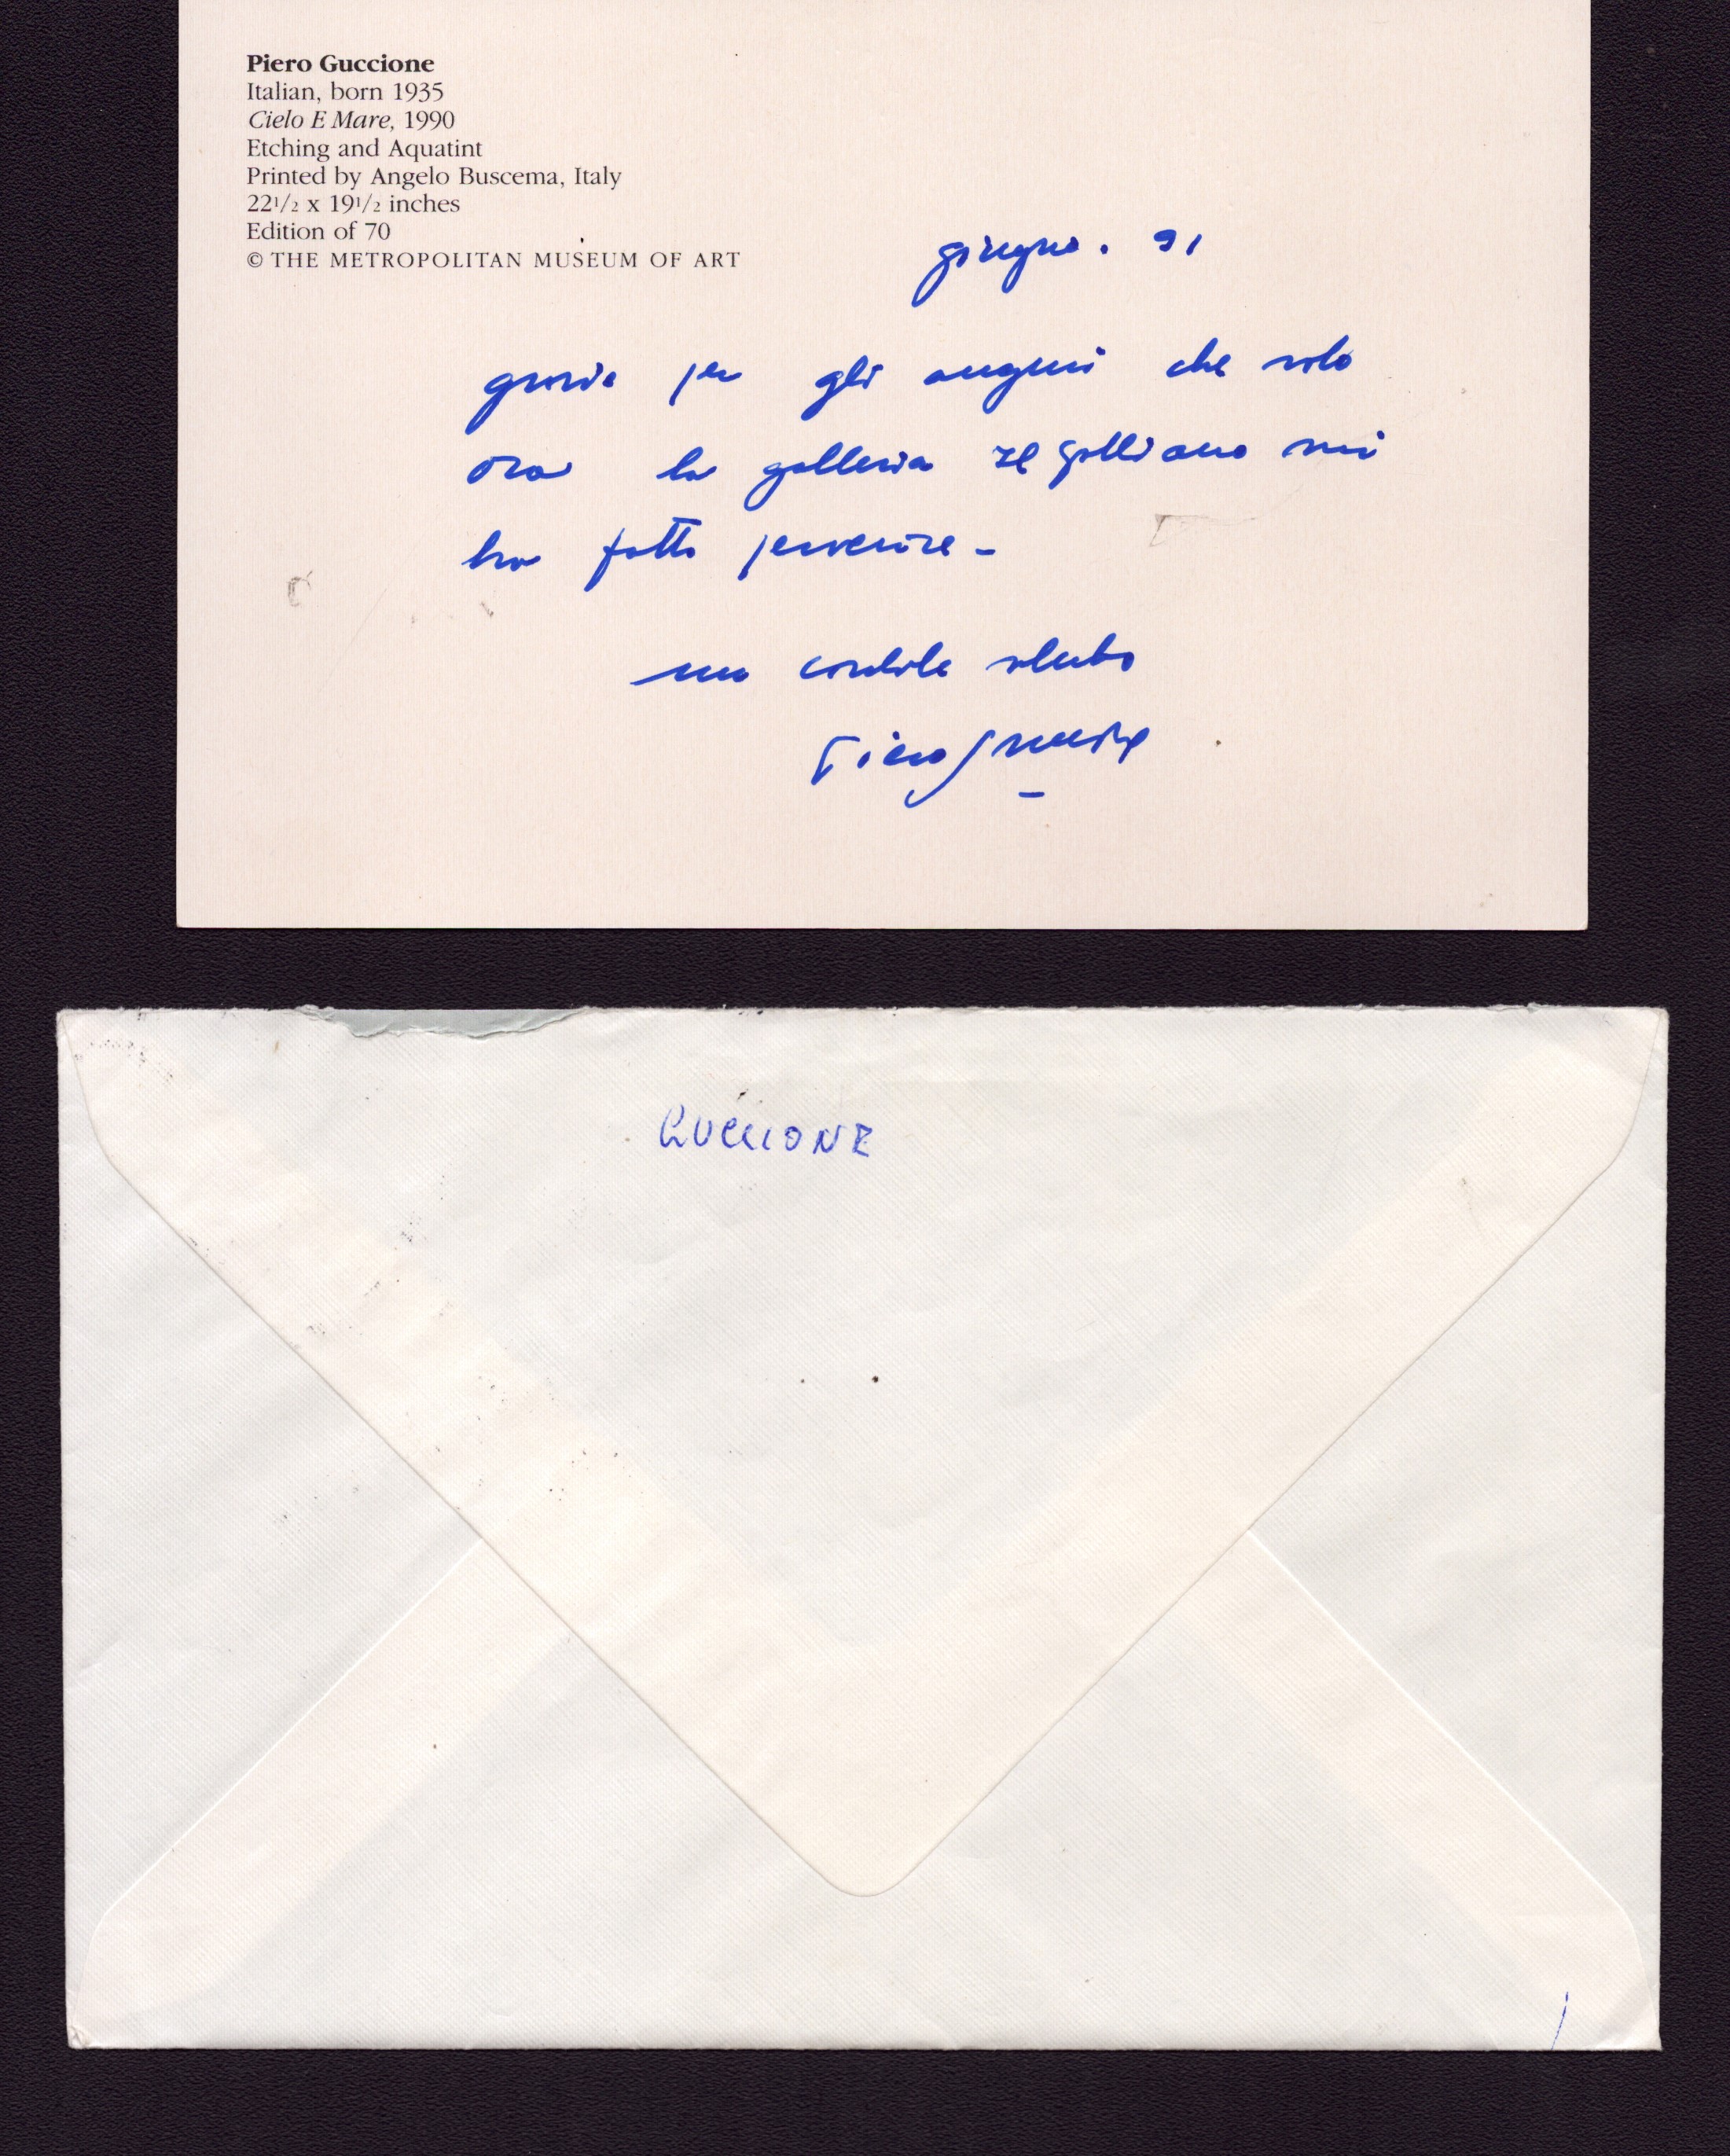 Piero Guccione
Italian, born 1935
Cielo E Mare, 1990
Etching and Aquatint
Printed by Angelo Buscema, Italy
22 1/2 x 19 1/2 inches
Edition of 70
© THE METROPOLITAN MUSEUM OF ART
giugno. 91
grazie per gli auguri che solo
ora la galleria il gabbiano mi
ha fatto pervenire -
un cordiale saluto
Piero Guccione
GUCCIONE